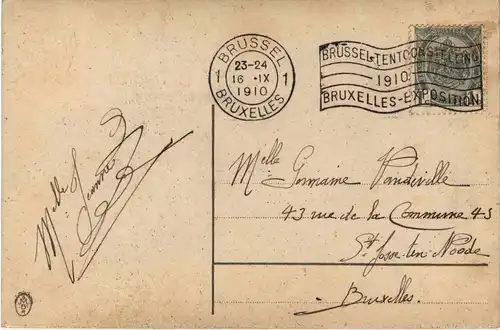 BRUSSEL
23-24
1 16 · IX 1
1910
BRUXELLES
BRUSSEL-TENTOONSTELLING
1910
BRUXELLES-EXPOSITION
Melle
Jeanne
Melle Germaine Vandeville
43 rue de la Commune 43
St Josse-ten-Noode
Bruxelles.